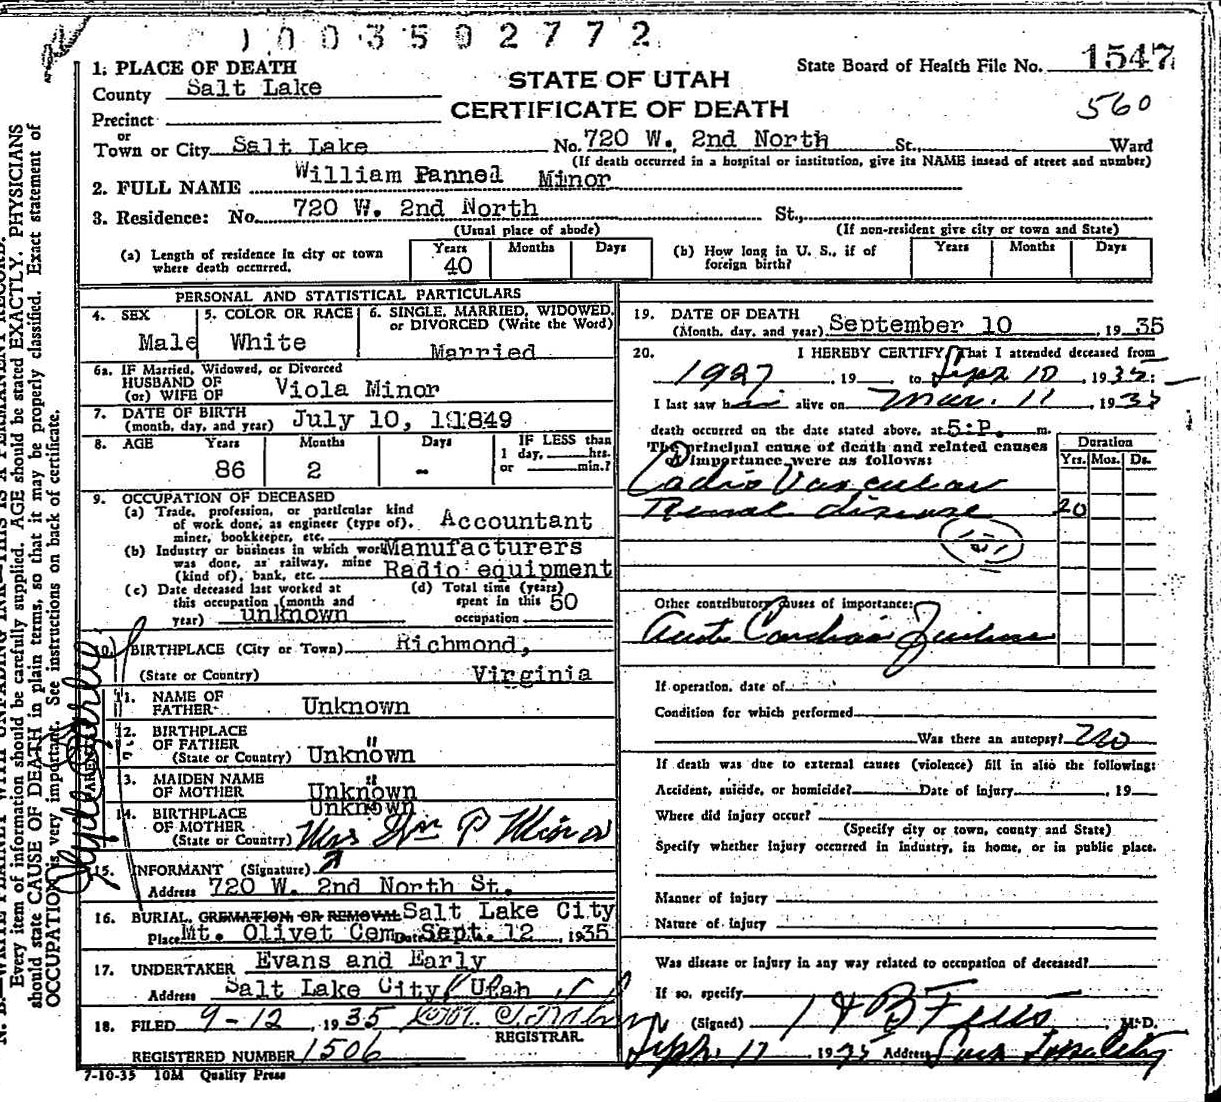 1003502772
1. PLACE OF DEATH
County Salt Lake
Precinct
or
Town or City Salt Lake No. 720 W. 2nd North St., Ward
STATE OF UTAH
CERTIFICATE OF DEATH
State Board of Health File No. 1547
560
(If death occurred in a hospital or institution, give its NAME insead of street and number)
2. FULL NAME William Pannel Minor
3. Residence: No. 720 W. 2nd North St.,
(Usual place of abode) (If non-resident give city or town and State)
(a) Length of residence in city or town where death occurred. Years 40 Months Days
(b) How long in U. S., if of foreign birth? Years Months Days
PERSONAL AND STATISTICAL PARTICULARS
4. SEX Male
5. COLOR OR RACE White
6. SINGLE, MARRIED, WIDOWED, or DIVORCED (Write the Word) Married
6a. IF Married, Widowed, or Divorced
HUSBAND OF
(or) WIFE OF Viola Minor
7. DATE OF BIRTH
(month, day, and year) July 10, 11849
8. AGE Years 86 Months 2 Days -
IF LESS than 1 day, hrs. or min.?
9. OCCUPATION OF DECEASED
(a) Trade, profession, or particular kind of work done, as engineer (type of), miner, bookkeeper, etc. Accountant
(b) Industry or business in which work was done, as railway, mine (kind of), bank, etc. Manufacturers Radio equipment
(c) Date deceased last worked at this occupation (month and year) unknown
(d) Total time (years) spent in this occupation 50
10. BIRTHPLACE (City or Town) Richmond,
(State or Country) Virginia
PARENTS
11. NAME OF FATHER Unknown
12. BIRTHPLACE OF FATHER (State or Country) " Unknown
13. MAIDEN NAME OF MOTHER " Unknown
14. BIRTHPLACE OF MOTHER (State or Country) Unknown
Mrs Wm P Minor
15. INFORMANT (Signature)
Address 720 W. 2nd North St.
16. BURIAL, CREMATION OR REMOVAL Salt Lake City
Place Mt. Olivet Cem Date Sept. 12, 1935
17. UNDERTAKER Evans and Early
Address Salt Lake City, Utah
18. FILED 9-12, 1935
REGISTRAR.
REGISTERED NUMBER 1506
7-10-35 10M Quality Press
19. DATE OF DEATH
(Month, day, and year) September 10, 1935
20. I HEREBY CERTIFY, That I attended deceased from
1927, 19 to Sept 10, 1935;
I last saw him alive on Mar. 11, 1935
death occurred on the date stated above, at 5:P. m.
The principal cause of death and related causes of importance were as follows:
Duration
Yrs. Mos. Ds.
Cadio Vascular
Renal disease 20
131
Other contributory causes of importance:
Acute Cardiac Failure
If operation, date of
Condition for which performed
Was there an autopsy? no
If death was due to external causes (violence) fill in also the following:
Accident, suicide, or homicide? Date of injury, 19
Where did injury occur?
(Specify city or town, county and State)
Specify whether injury occurred in industry, in home, or in public place.
Manner of injury
Nature of injury
Was disease or injury in any way related to occupation of deceased?
If so, specify
(Signed) M.D.
Sept. 11 1935 Address
N. B.—WRITE PLAINLY WITH UNFADING INK—THIS IS A PERMANENT RECORD.
Every item of information should be carefully supplied. AGE should be stated EXACTLY. PHYSICIANS
should state CAUSE OF DEATH in plain terms, so that it may be properly classified. Exact statement of
OCCUPATION is very important. See instructions on back of certificate.